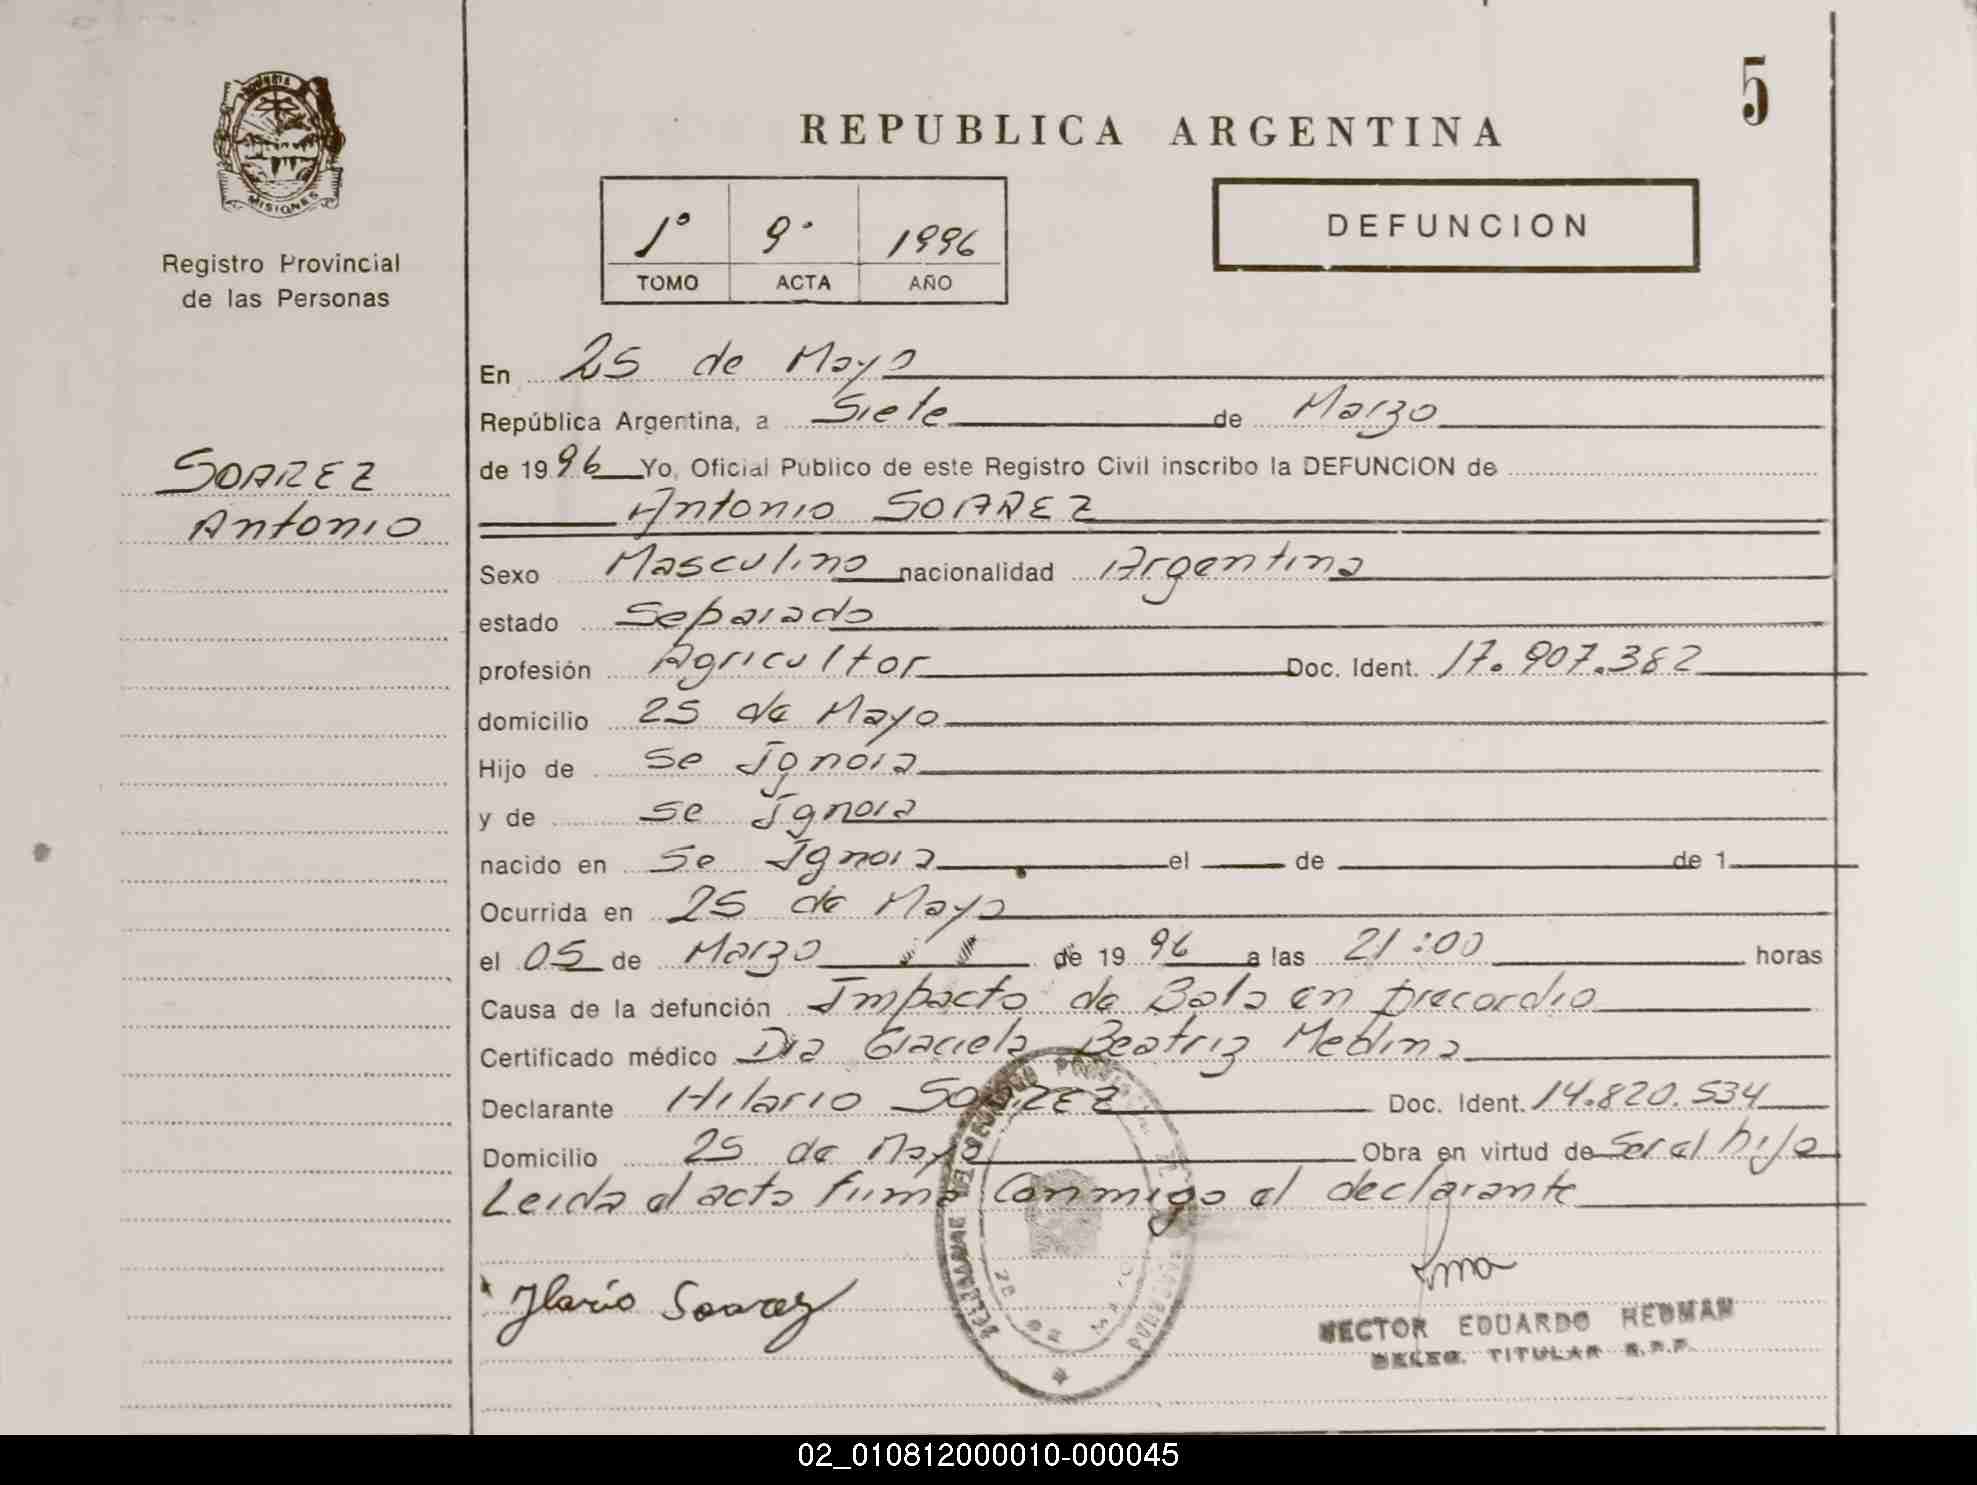 5
REPUBLICA ARGENTINA
MISIONES
Registro Provincial
de las Personas
1º 9º 1996
TOMO ACTA AÑO
DEFUNCION
SOAREZ
Antonio
En 25 de Mayo
República Argentina, a Siete de Marzo
de 1996 Yo, Oficial Público de este Registro Civil inscribo la DEFUNCION de
Antonio SOAREZ
Sexo Masculino nacionalidad Argentina
estado Separado
profesión Agricultor Doc. Ident. 17.907.382
domicilio 25 de Mayo
Hijo de se Ignora
y de se Ignora
nacido en se Ignora el de de 1
Ocurrida en 25 de Mayo
el 05 de Marzo de 1996 a las 21:00 horas
Causa de la defunción Impacto de Bala en precordio
Certificado médico Dra Graciela Beatriz Medina
Declarante Hilario SOAREZ Doc. Ident. 14.820.534
Domicilio 25 de Mayo Obra en virtud de Ser el hijo
Leida el acta firma Conmigo el declarante
Ilario Soarez
HECTOR EDUARDO HEDMAN
DELEG. TITULAR R.P.P.
02_010812000010-000045